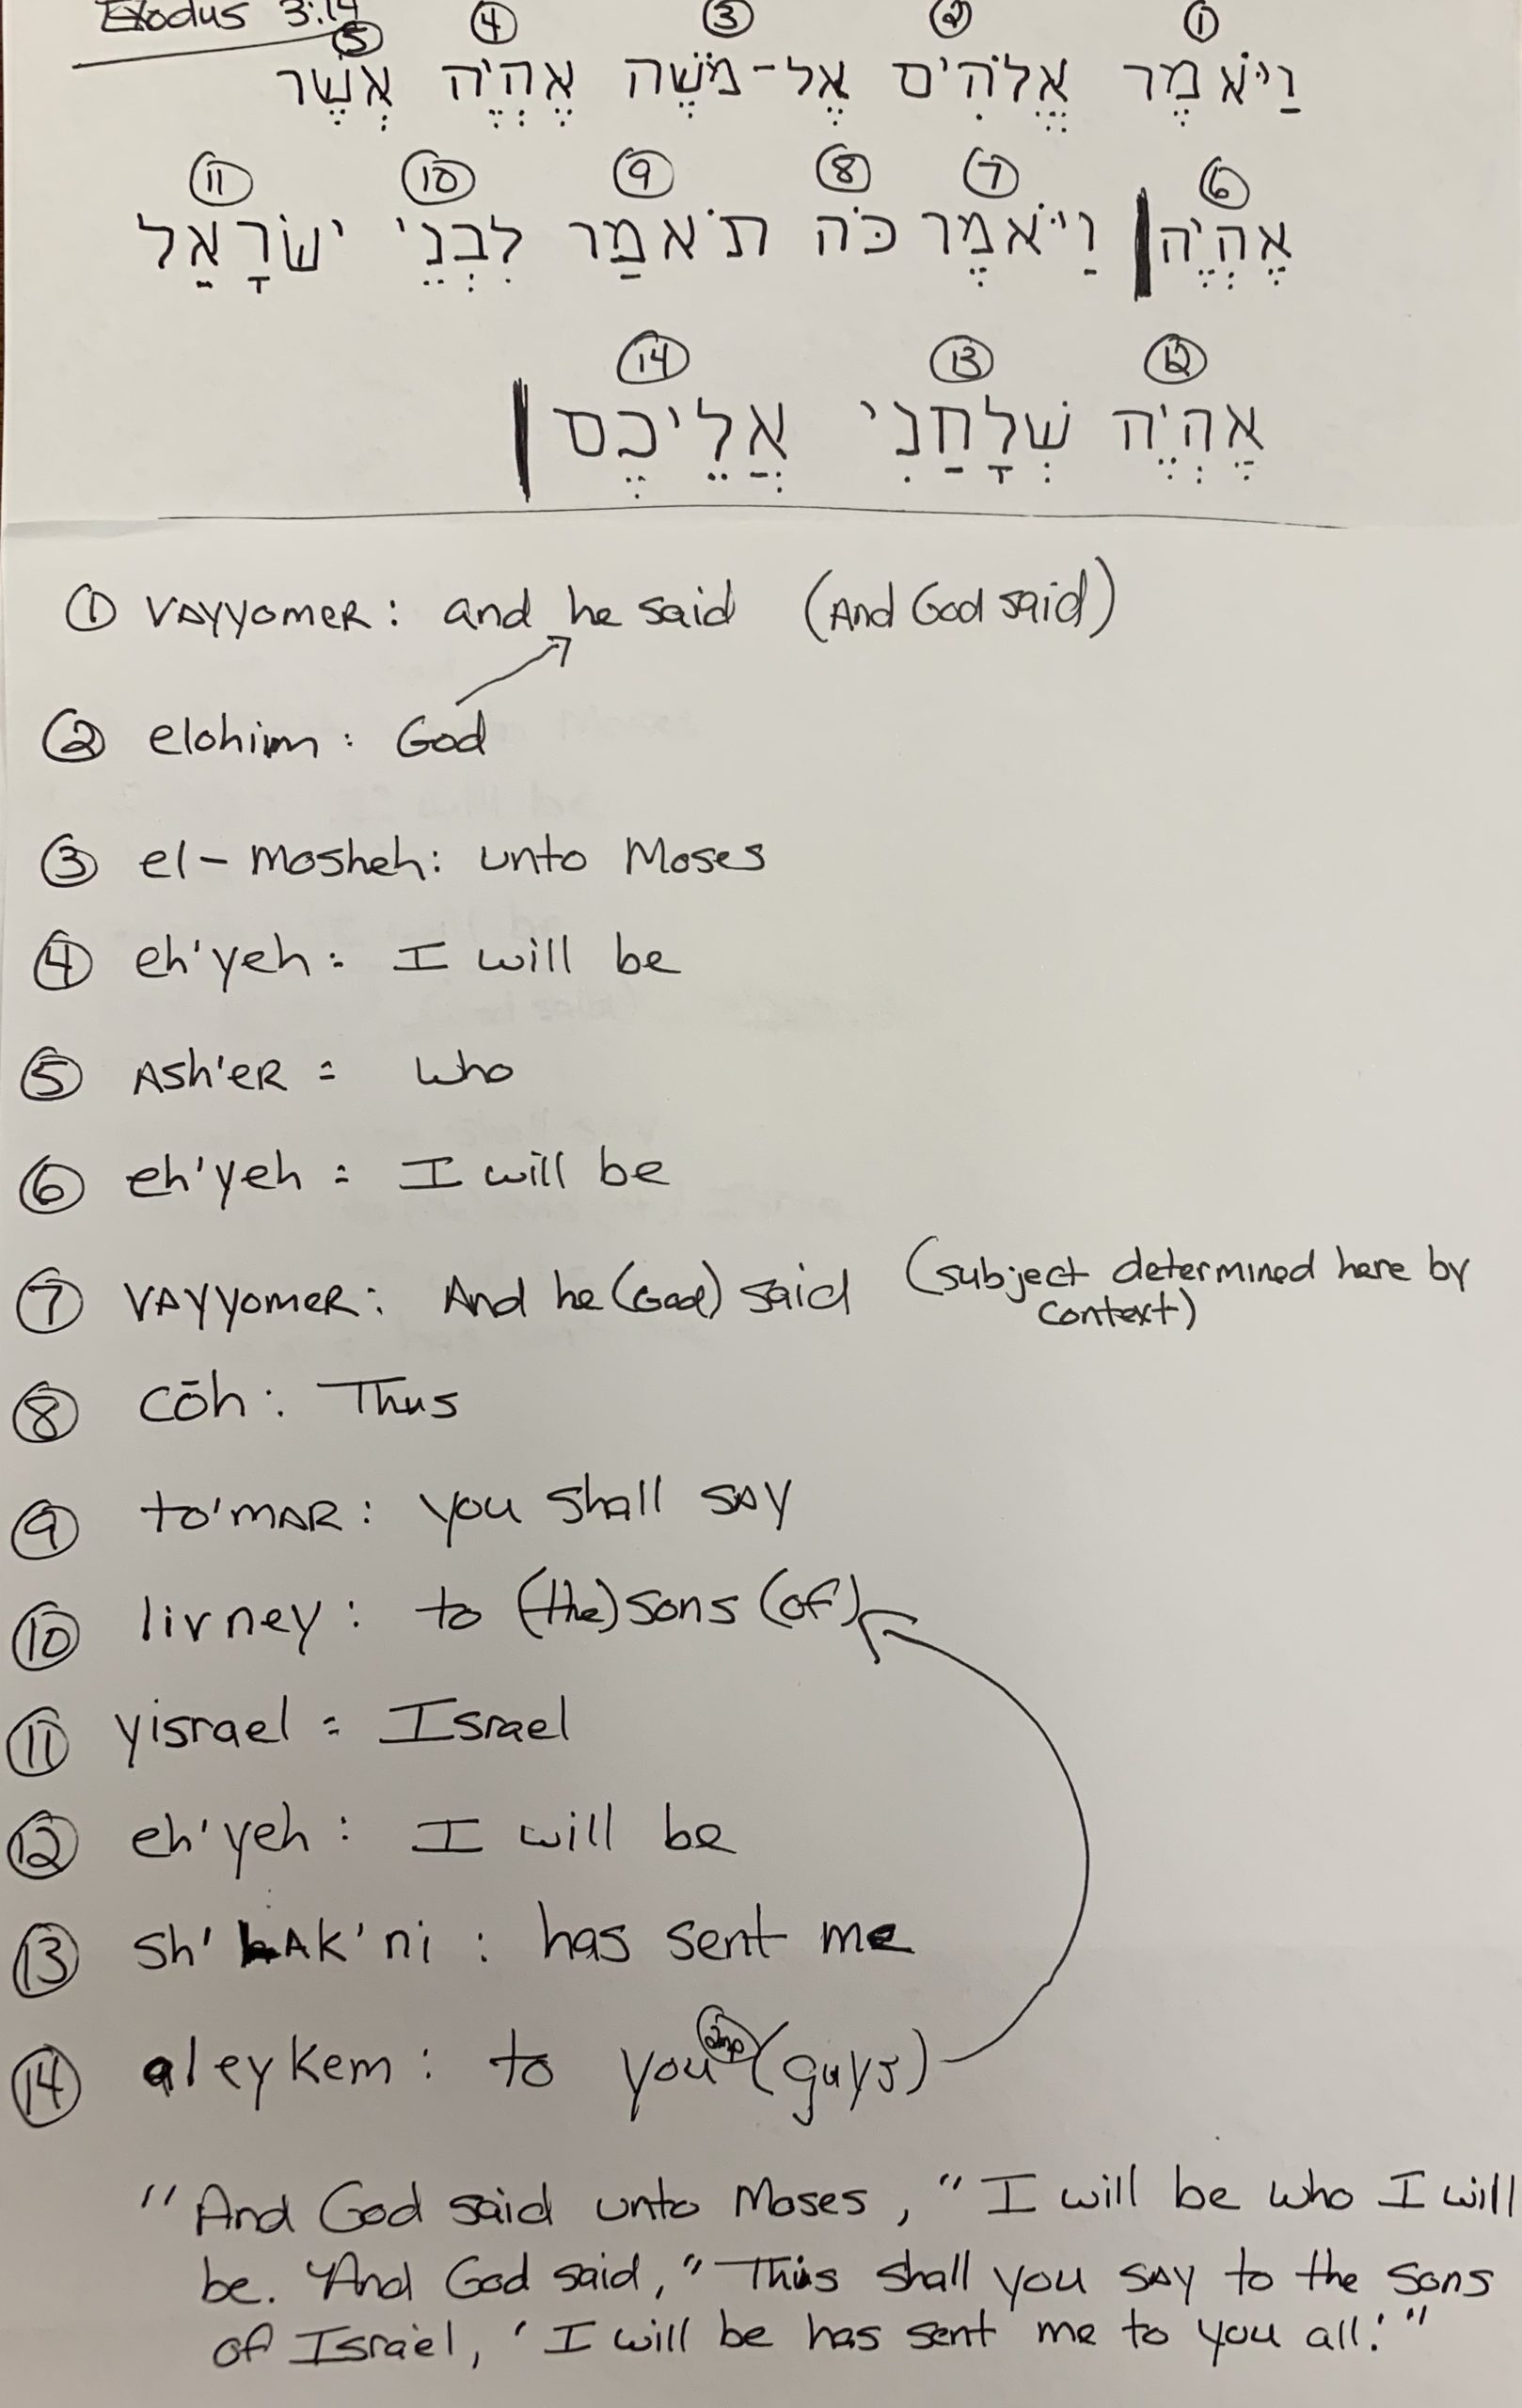 Exodus 3:14
① ② ③ ④ ⑤
וַיֹּאמֶר אֱלֹהִים אֶל-מֹשֶׁה אֶהְיֶה אֲשֶׁר
⑥ ⑦ ⑧ ⑨ ⑩ ⑪
אֶהְיֶה | וַיֹּאמֶר כֹּה תֹאמַר לִבְנֵי יִשֹרָאַל
⑫ ⑬ ⑭
אֶהְיֶה שְׁלָחַנִי אֲלֵיכֶם |
① VAYYOMER: and he said (And God said)
② elohim: God
③ el-mosheh: unto Moses
④ eh'yeh: I will be
⑤ ASh'ER = who
⑥ eh'yeh = I will be
⑦ VAYYOMER: And he (God) said (subject determined here by
context)
⑧ cōh: Thus
⑨ to'MAR: you shall SAY
⑩ livney: to (the) sons (of)
⑪ yisrael = Israel
⑫ eh'yeh: I will be
⑬ sh' AK'ni: has sent me
⑭ aleykem: to you 2mp (guys)
"And God said unto Moses, "I will be who I will
be. And God said, "Thus shall you SAY to the sons
of Israel, 'I will be has sent me to you all.'"